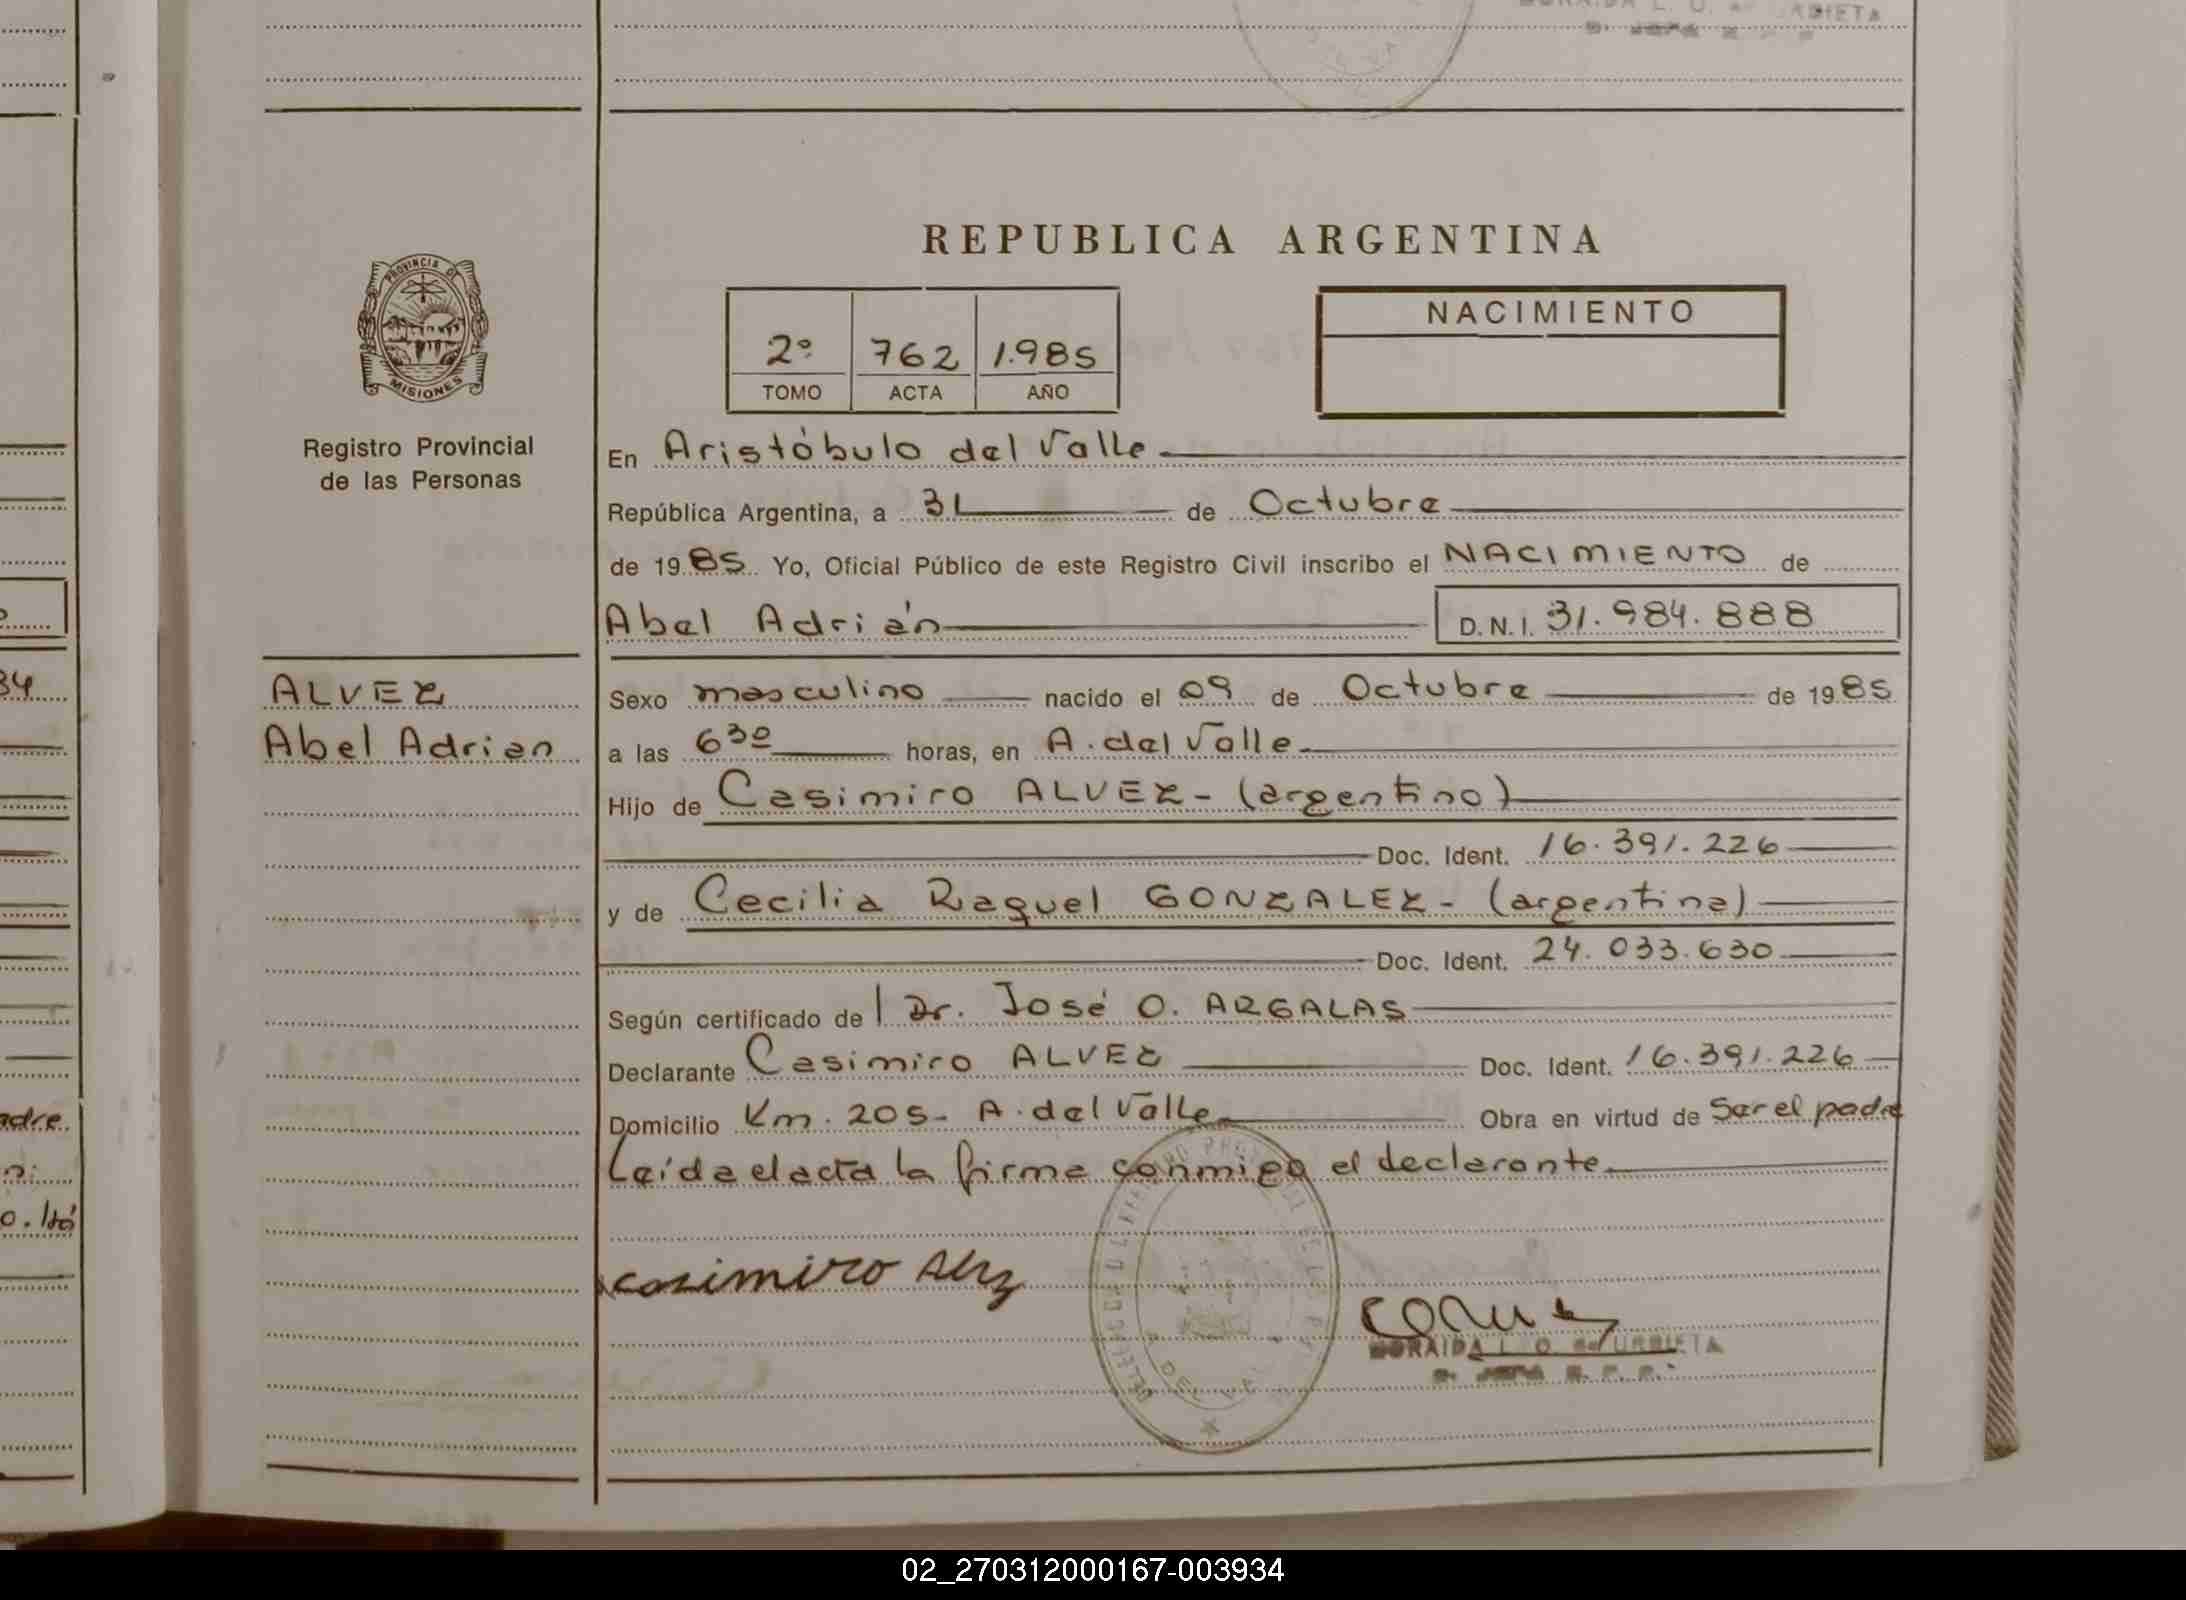 URBIETA
REPUBLICA ARGENTINA
PROVINCIA DE
MISIONES
Registro Provincial
de las Personas
2º 762 1.985
TOMO ACTA AÑO
NACIMIENTO
En Aristóbulo del Valle
República Argentina, a 31 de Octubre
de 1985 Yo, Oficial Público de este Registro Civil inscribo el NACIMIENTO de
Abel Adrián D.N.I. 31.984.888
ALVEZ
Abel Adrian
Sexo masculino nacido el 09 de Octubre de 1985
a las 630 horas, en A. del Valle
Hijo de Casimiro ALVEZ - (argentino)
Doc. Ident. 16.391.226
y de Cecilia Raquel GONZALEZ - (argentina)
Doc. Ident. 24.033.630
Según certificado de Dr. José O. ARGALAS
Declarante Casimiro ALVEZ Doc. Ident. 16.391.226
Domicilio Km. 205 - A. del Valle Obra en virtud de Ser el padre
Leída el acta la firma conmigo el declarante
casimiro
DEL VALLE
MORAIDA L. O. de URBIETA
34
adre.
02_270312000167-003934